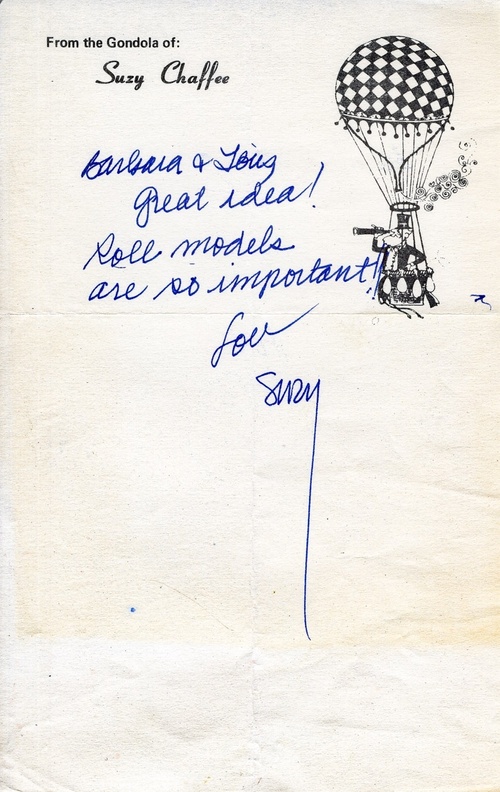 From the Gondola of:
Suzy Chaffee
Barbara &
Great idea!
Roll models
are so important!!
Love
Suzy